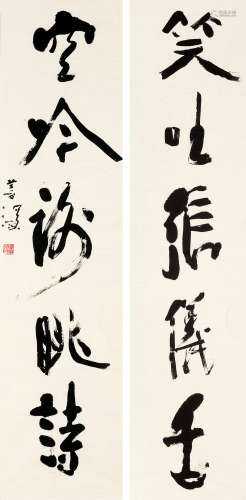 笑吐張儀舌
空吟謝朓詩